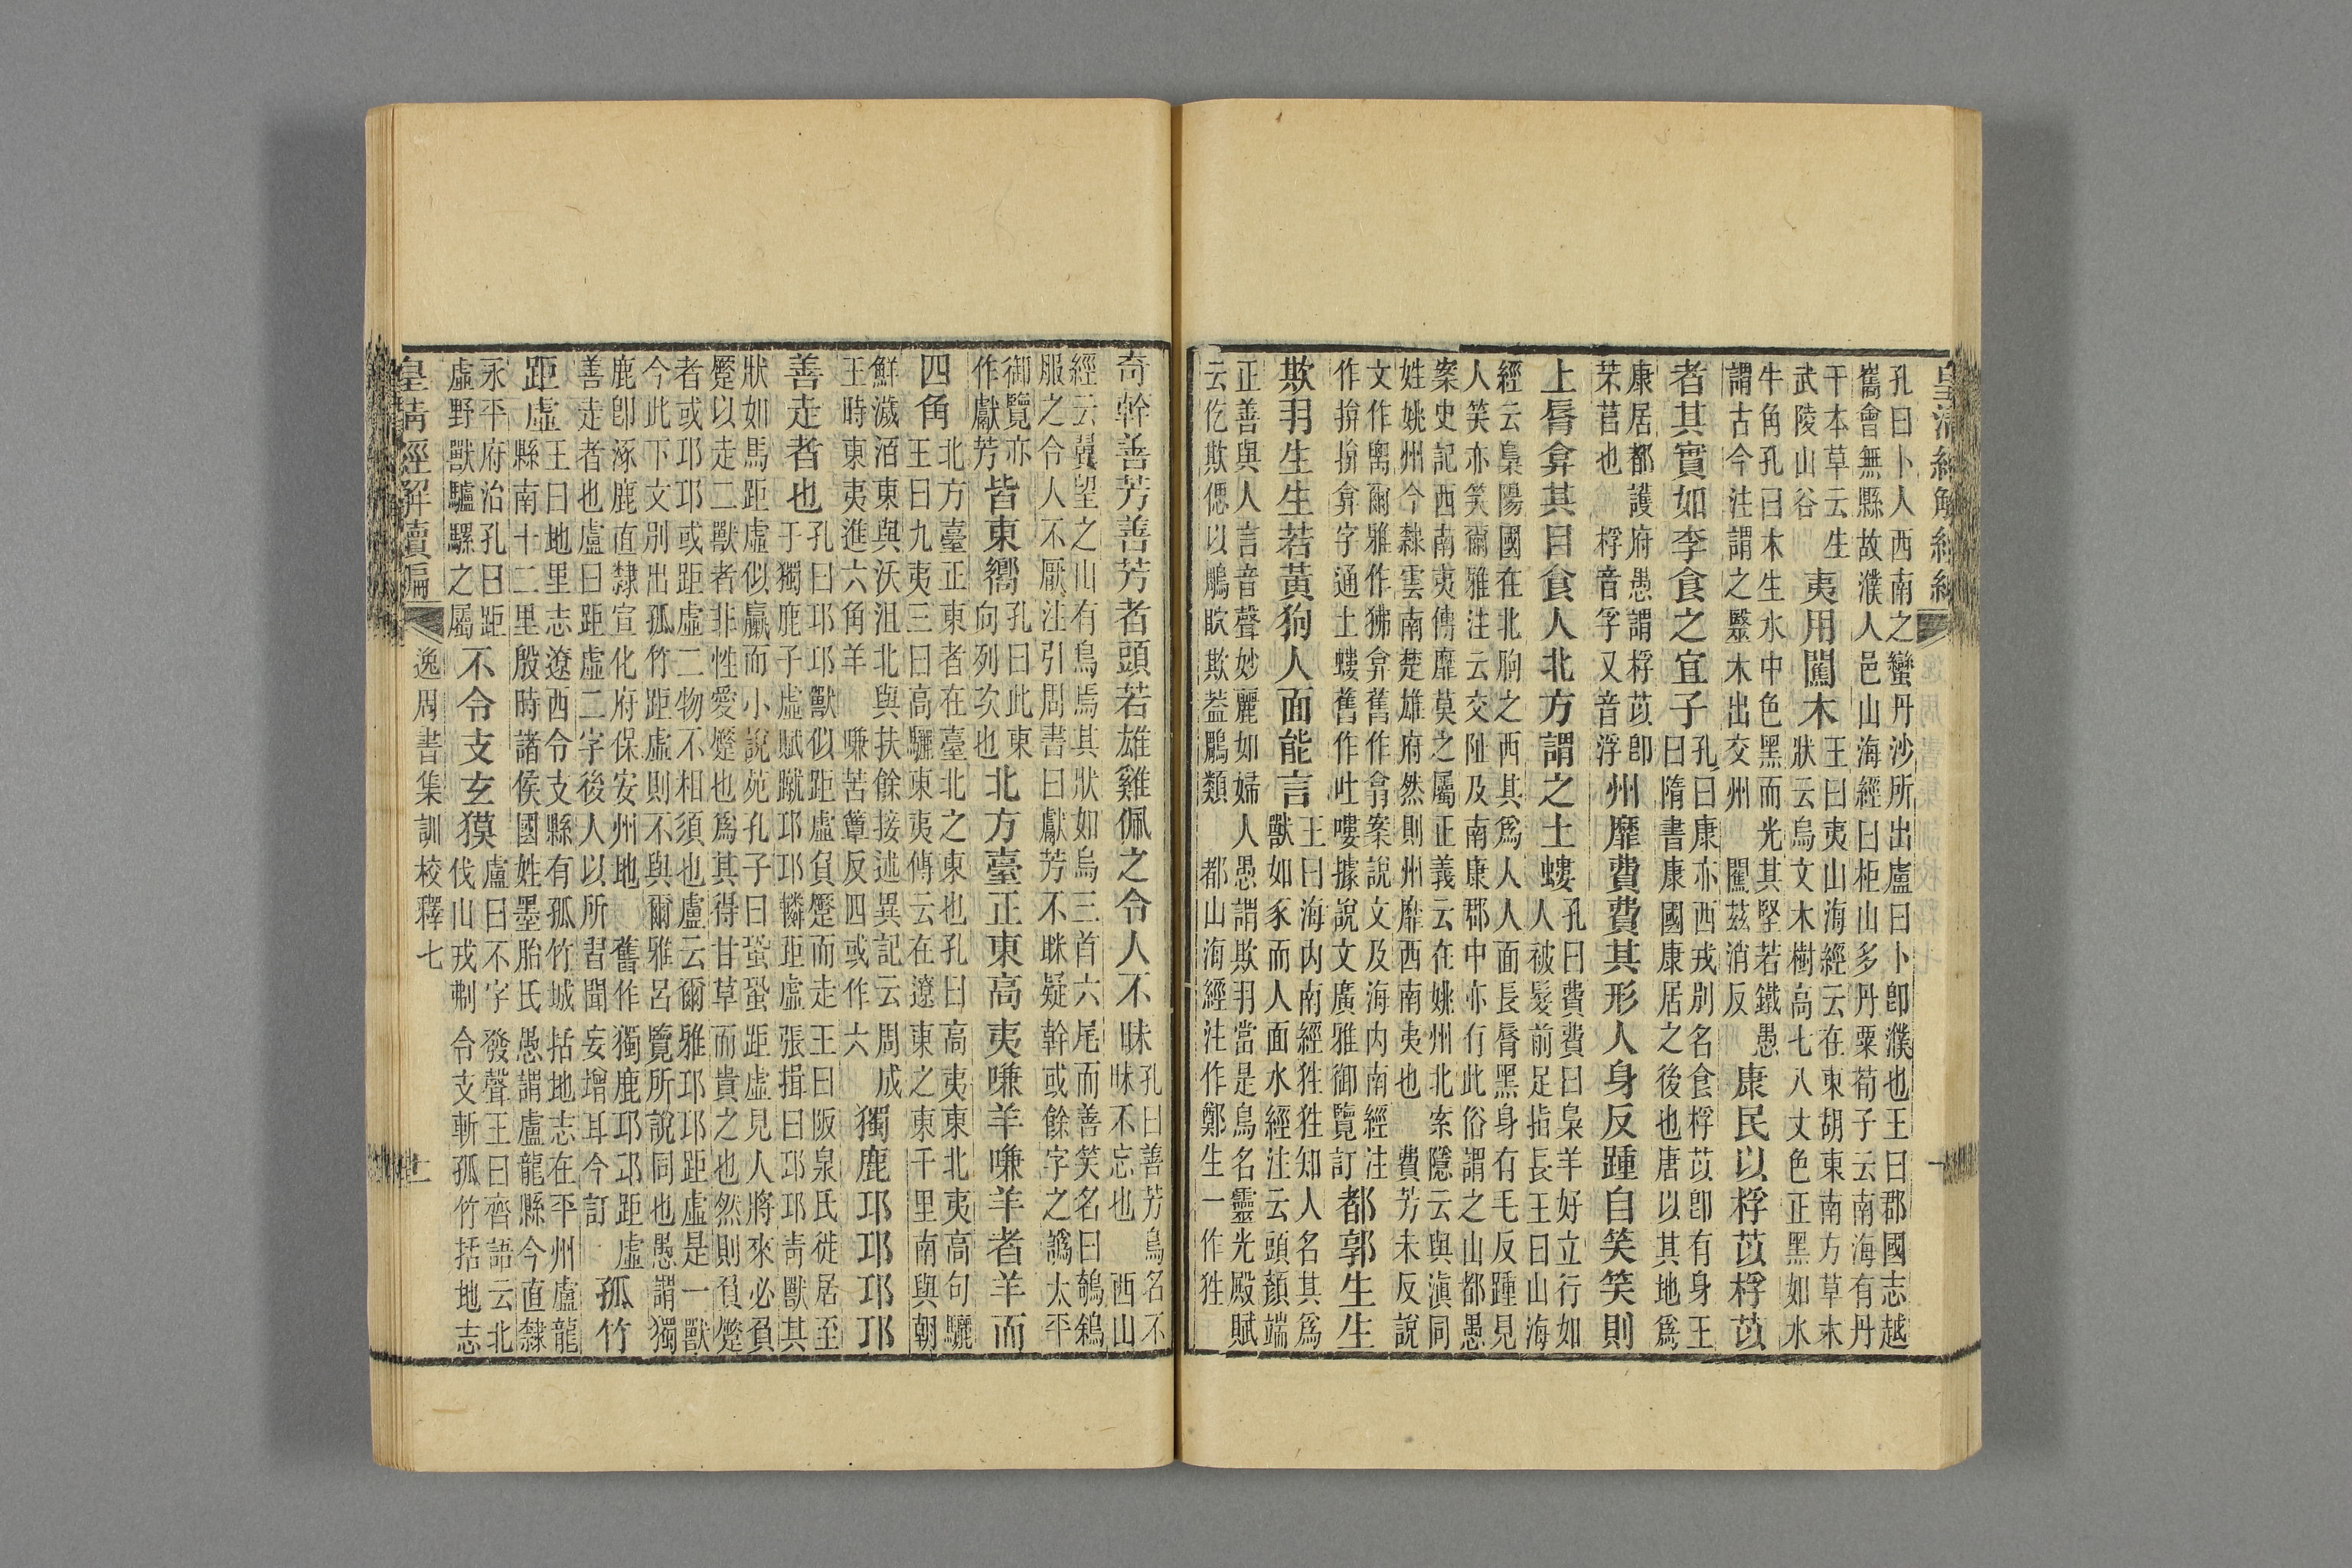 孔曰卜人西南之蠻丹沙所出盧曰卜卽濮也王曰郡國志越
嶲會無縣故濮人邑山海經曰柜山多丹粟荀子云南海有丹
干本草云生武陵山谷夷用闒木王曰夷山海經云在東胡東南方草木狀云烏文木樹高七八丈色正黑如水
牛角孔曰木生水中色黑而光其堅若鐵愚謂古今注謂之翳木出交州 闒茲消反康民以桴苡桴苡
者其實如李食之宜子孔曰康亦西戎別名食桴苡卽有身王曰隋書康國康居之後也唐以其地爲
康居都護府愚謂桴苡卽芣苢也 桴音孚又音浮州靡費費其形人身反踵自笑笑則
上脣弇其目食人北方謂之土螻孔曰費費曰梟羊好立行如人被髮前足指長王曰山海
經云梟陽國在北朐之西其爲人人面長脣黑身有毛反踵見
人笑亦笑爾雅注云交阯及南康郡中亦有此俗謂之山都愚
案史記西南夷傳靡莫之屬正義云在姚州北索隱云與滇同
姓姚州今隸雲南楚雄府然則州靡西南夷也 費芳未反說
文作爾雅作狒弇舊作弇案說文及海內南經注作揜揜弇字通土螻舊作吐嘍據說文廣雅御覽訂都郭生生
欺羽生生若黃狗人面能言王曰海內南經狌狌知人名其爲獸如豕而人面水經注云頭顏端
正善與人言音聲妙麗如婦人愚謂欺羽當是鳥名靈光殿賦
云仡欺以鵰欺葢鵰類 都山海經注作鄭生一作狌
奇幹善芳善芳者頭若雄雞佩之令人不昧孔曰善芳鳥名不昧不忘也 西山
經云翼望之山有鳥焉其狀如烏三首六尾而善笑名曰鵸鵌
服之令人不厭注引周書曰獻芳不眯疑幹或餘字之譌太平
御覽亦作獻芳皆東嚮孔曰此東向列次也北方臺正東高夷嗛羊嗛羊者羊而
四角北方臺正東者在臺北之東也孔曰高夷東北夷高句驪王曰九夷三曰高驪東夷傳云在遼東之東千里南與朝
鮮濊𣵠東與沃沮北與扶餘接述異記云周成王時東夷進六角羊 嗛苦簟反四或作六獨鹿邛邛邛邛
善走者也孔曰邛邛獸似距虛負蹷而走王曰阪泉氏徙居至于獨鹿子虛賦蹴邛邛轔距虛張揖曰邛邛靑獸其
狀如馬距虛似驘而小說苑孔子曰蛩蛩距虛見人將來必負
蹷以走二獸者非性愛蹷也爲其得甘草而貴之也然則負蹷
者或邛邛或距虛二物不相須也盧云爾雅邛邛距虛是一獸
今此下文別出孤竹距虛則不與爾雅呂覽所說同也愚謂獨
鹿卽涿鹿直隸宣化府保安州地 舊作獨鹿邛邛距虛善走者也盧曰距虛二字後人以所習聞妄增耳今訂孤竹
距虛王曰地里志遼西令支縣有孤竹城括地志在平州盧龍縣南十二里殷時諸侯國姓墨胎氏愚謂盧龍縣今直隸
永平府治孔曰距虛野獸驢騾之屬不令支玄獏盧曰不字發聲王曰齊語云北伐山戎刜令支斬孤竹括地志
皇淸經解續編 逸周書集訓校釋七